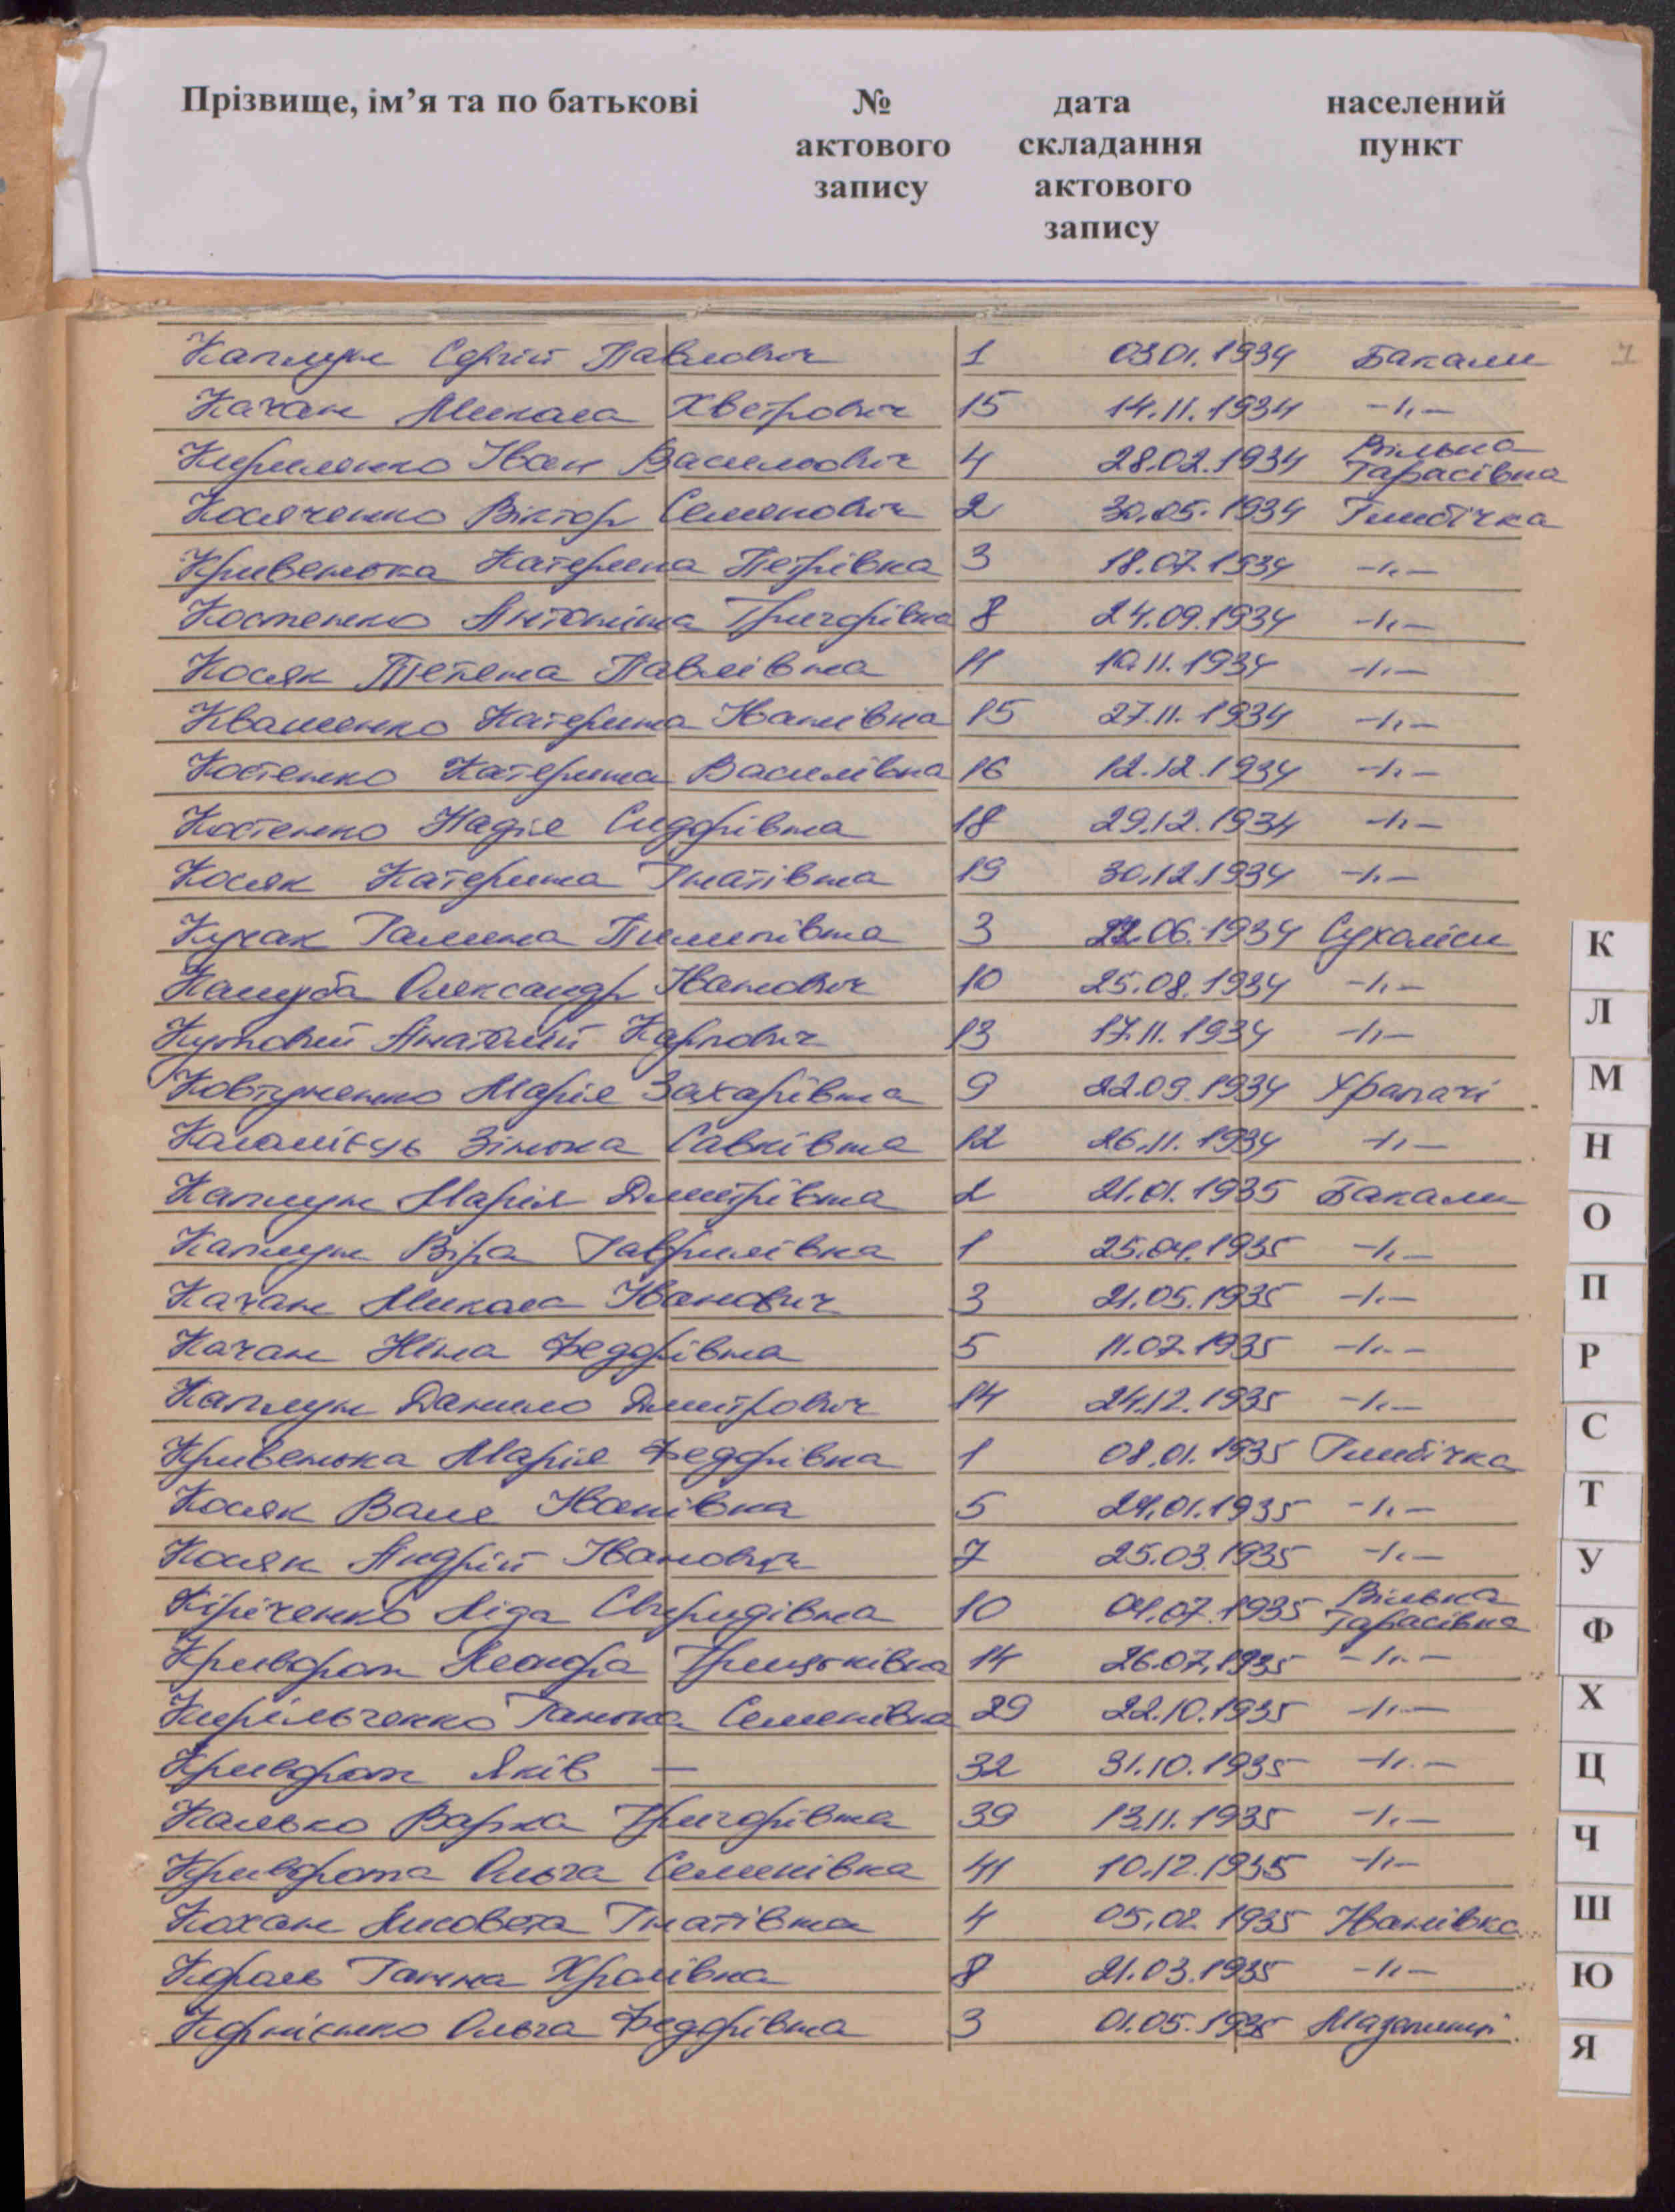 Прізвище, ім’я та по батькові № дата населений
актового складання пункт
запису актового
запису
7
Каплун Сергій Павлович 1 03.01.1934 Бакали
Качан Микола Хветрович 15 14.11.1934 -"-
Кириленко Іван Васильович 4 28.02.1934 Вільна Тарасівка
Косяченко Віктор Семенович 2 30.05.1934 Глибічка
Кривенька Катерина Петрівна 3 18.07.1934 -"-
Костенко Антоніна Григорівна 8 24.09.1934 -"-
Косяк Тетяна Павлівна 11 10.11.1934 -"-
Квашенко Катерина Іванівна 15 27.11.1934 -"-
Костенко Катерина Василівна 16 12.12.1934 -"-
Костенко Надія Сидорівна 18 29.12.1934 -"-
Косяк Катерина Гнатівна 19 30.12.1934 -"-
Кучак Галина Пилипівна 3 22.06.1934 Сухоліси
Кашуба Олександр Іванович 10 25.08.1934 -"-
Кутовий Анатолій Карпович 13 17.11.1934 -"-
Ковтуненко Марія Захарівна 9 22.09.1934 Храпачі
Коломієць Зінька Савківна 12 26.11.1934 -"-
Каплун Марія Дмитрівна 2 21.01.1935 Бакали
Каплун Віра Гаврилівна 1 25.04.1935 -"-
Качан Микола Іванович 3 21.05.1935 -"-
Качан Ніна Федорівна 5 11.07.1935 -"-
Каплун Данило Дмитрович 14 24.12.1935 -"-
Кривенька Марія Федорівна 1 08.01.1935 Глибічка
Косяк Валя Іванівна 5 24.01.1935 -"-
Косяк Андрій Іванович 7 25.03.1935 -"-
Кіріченко Ліда Свиридівна 10 04.07.1935 Вільна Тарасівка
Криворот Григорівна 14 26.07.1935 -"-
Кирільченко Ганька Семенівна 29 22.10.1935 -"-
Криворот Яків — 32 31.10.1935 -"-
Калько Варка Григорівна 39 13.11.1935 -"-
Криворота Ольга Семенівна 41 10.12.1935 -"-
Кохан Лисовета Гнатівна 4 05.02.1935 Іванівка
Король Ганна Хролівна 8 21.03.1935 -"-
Корнієнко Ольга Федорівна 3 01.05.1935 Мазепинці
К
Л
М
Н
О
П
Р
С
Т
У
Ф
Х
Ц
Ч
Ш
Ю
Я